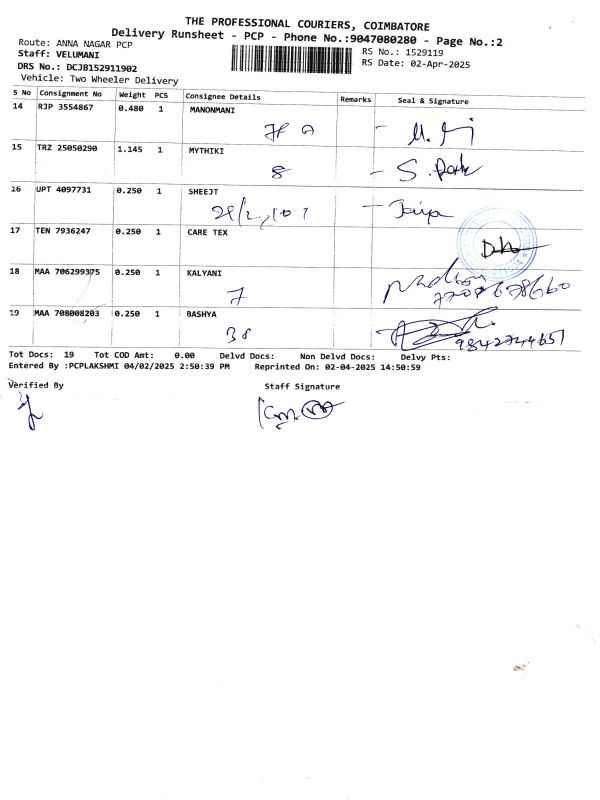 THE PROFESSIONAL COURIERS, COIMBATORE
Delivery Runsheet - PCP - Phone No.:9047080280 - Page No.:2
Route: ANNA NAGAR PCP
RS No.: 1529119
Staff: VELUMANI
RS Date: 02-Apr-2025
DRS No.: DCJB152911902
Vehicle: Two Wheeler Delivery
S No Consignment No Weight PCS Consignee Details Remarks Seal & Signature
14 RJP 3554867 0.480 1 MANONMANI
15 TRZ 25050290 1.145 1 MYTHIKI
8 - S.
16 UPT 4097731 0.250 1 SHEEJT
17 TEN 7936247 0.250 1 CARE TEX
18 MAA 706299375 0.250 1 KALYANI
7
19 MAA 708008203 0.250 1 BASHYA
38 9842744651
Tot Docs: 19 Tot COD Amt: 0.00 Delvd Docs: Non Delvd Docs: Delvy Pts:
Entered By :PCPLAKSHMI 04/02/2025 2:50:39 PM Reprinted On: 02-04-2025 14:50:59
Verified By Staff Signature